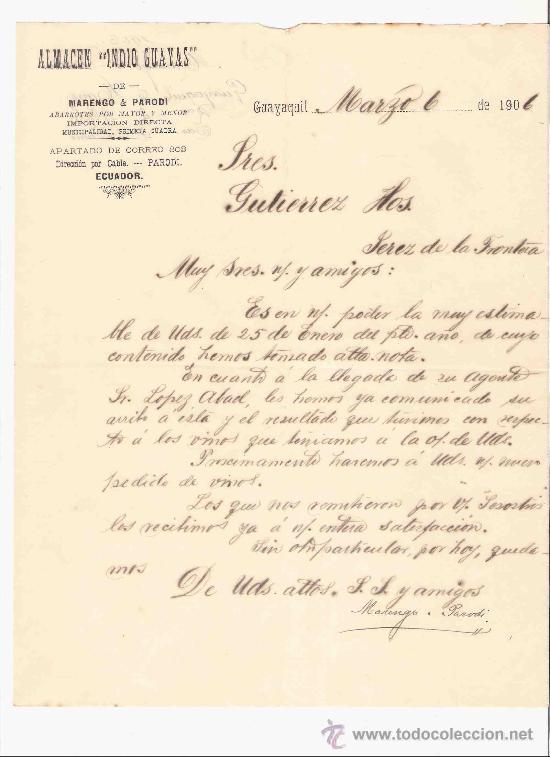 ALMACEN "INDIO GUAYAS"
— DE —
MARENGO & PARODI
ABARROTES POR MAYOR Y MENOR
IMPORTACION DIRECTA
MUNICIPALIDAD, PRIMERA CUADRA.
APARTADO DE CORREO 203
Dirección por Cable. — PARODI.
ECUADOR.
Guayaquil Marzo 6 de 1906
Sres.
Gutierrez Hos.
Jerez de la Frontera
Muy Sres. n/. y amigos:
Es en n/. poder la muy estima-
ble de Uds. de 25 de Enero del pte. año, de cuyo
contenido hemos tomado atta. nota.
En cuanto á la llegada de su Agente
Sr. Lopez Abad, les hemos ya comunicado su
arribo á ésta y el resultado que tuvimos con respec-
to á los vinos que teniamos a la o/. de Uds.
Proximamente haremos á Uds. n/. nuevo
pedido de vinos.
Los que nos remitieron por v/.
los recibimos ya á n/. entera satisfacción.
Sin otro particular, por hoy, queda-
mos
De Uds. attos. S. S. y amigos
Marengo & Parodi
todocoleccion
www.todocoleccion.net